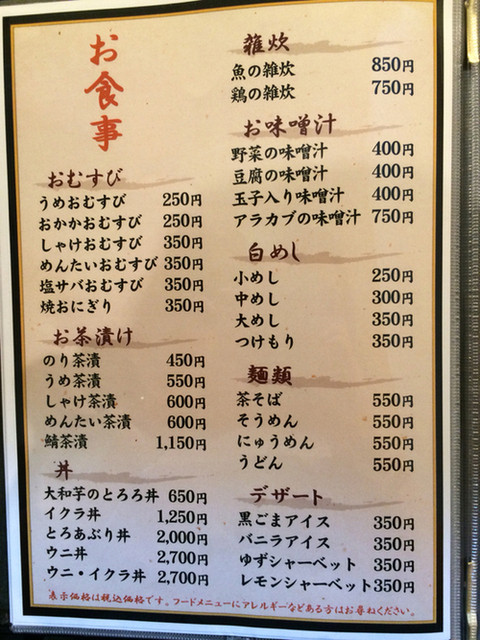 お食事
おむすび
うめおむすび 250円
おかかおむすび 250円
しゃけおむすび 350円
めんたいおむすび 350円
塩サバおむすび 350円
焼おにぎり 350円
お茶漬け
のり茶漬 450円
うめ茶漬 550円
しゃけ茶漬 600円
めんたい茶漬 600円
鯖茶漬 1,150円
丼
大和芋のとろろ丼 650円
イクラ丼 1,250円
とろあぶり丼 2,000円
ウニ丼 2,700円
ウニ・イクラ丼 2,700円
雑炊
魚の雑炊 850円
鶏の雑炊 750円
お味噌汁
野菜の味噌汁 400円
豆腐の味噌汁 400円
玉子入り味噌汁 400円
アラカブの味噌汁 750円
白めし
小めし 250円
中めし 300円
大めし 350円
つけもり 350円
麺類
茶そば 550円
そうめん 550円
にゅうめん 550円
うどん 550円
デザート
黒ごまアイス 350円
バニラアイス 350円
ゆずシャーベット 350円
レモンシャーベット 350円
表示価格は税込価格です。フードメニューにアレルギーなどある方はお尋ねください。